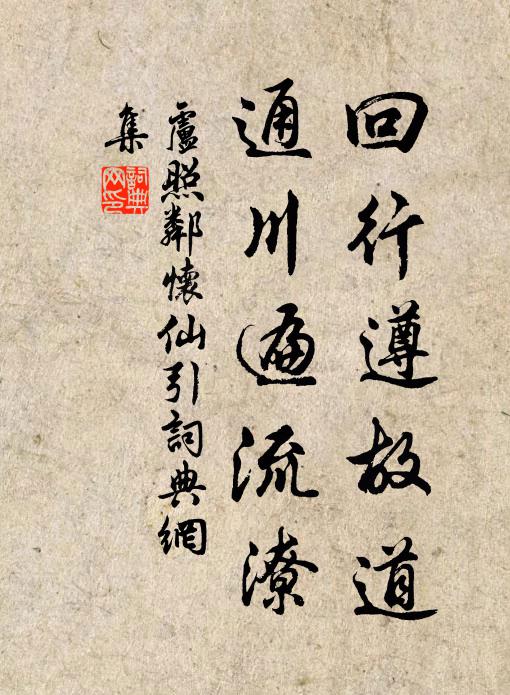 回行遵故道
通川遍流潦
盧照鄰懷仙引詞典網
集
詞典網印